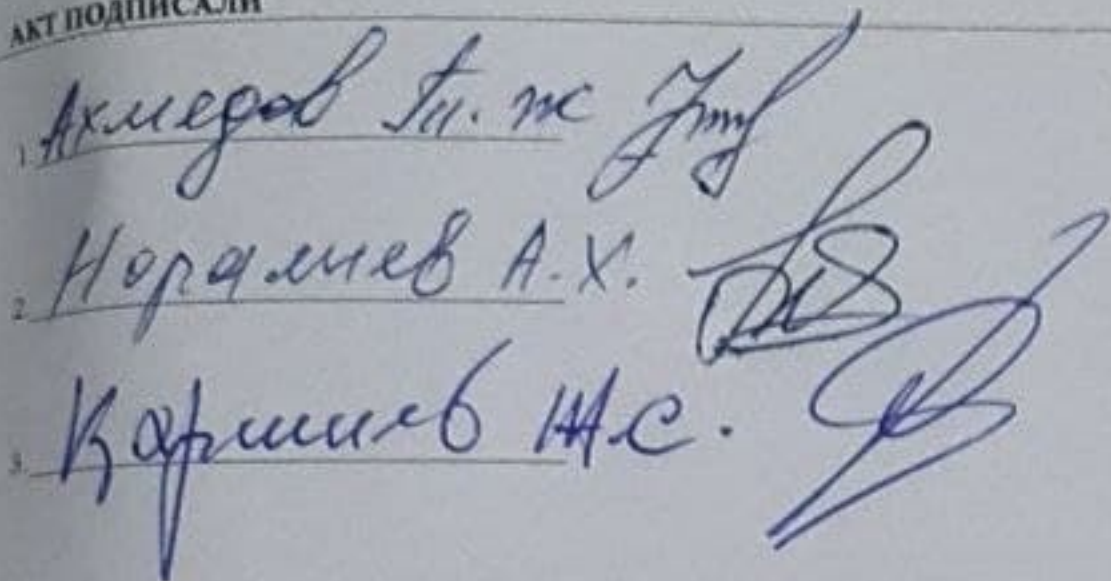 АКТ ПОДПИСАЛИ
1. Ахмедов Т. Ж
2. Норалиев А.Х.
3. Каршиев Ж.С.